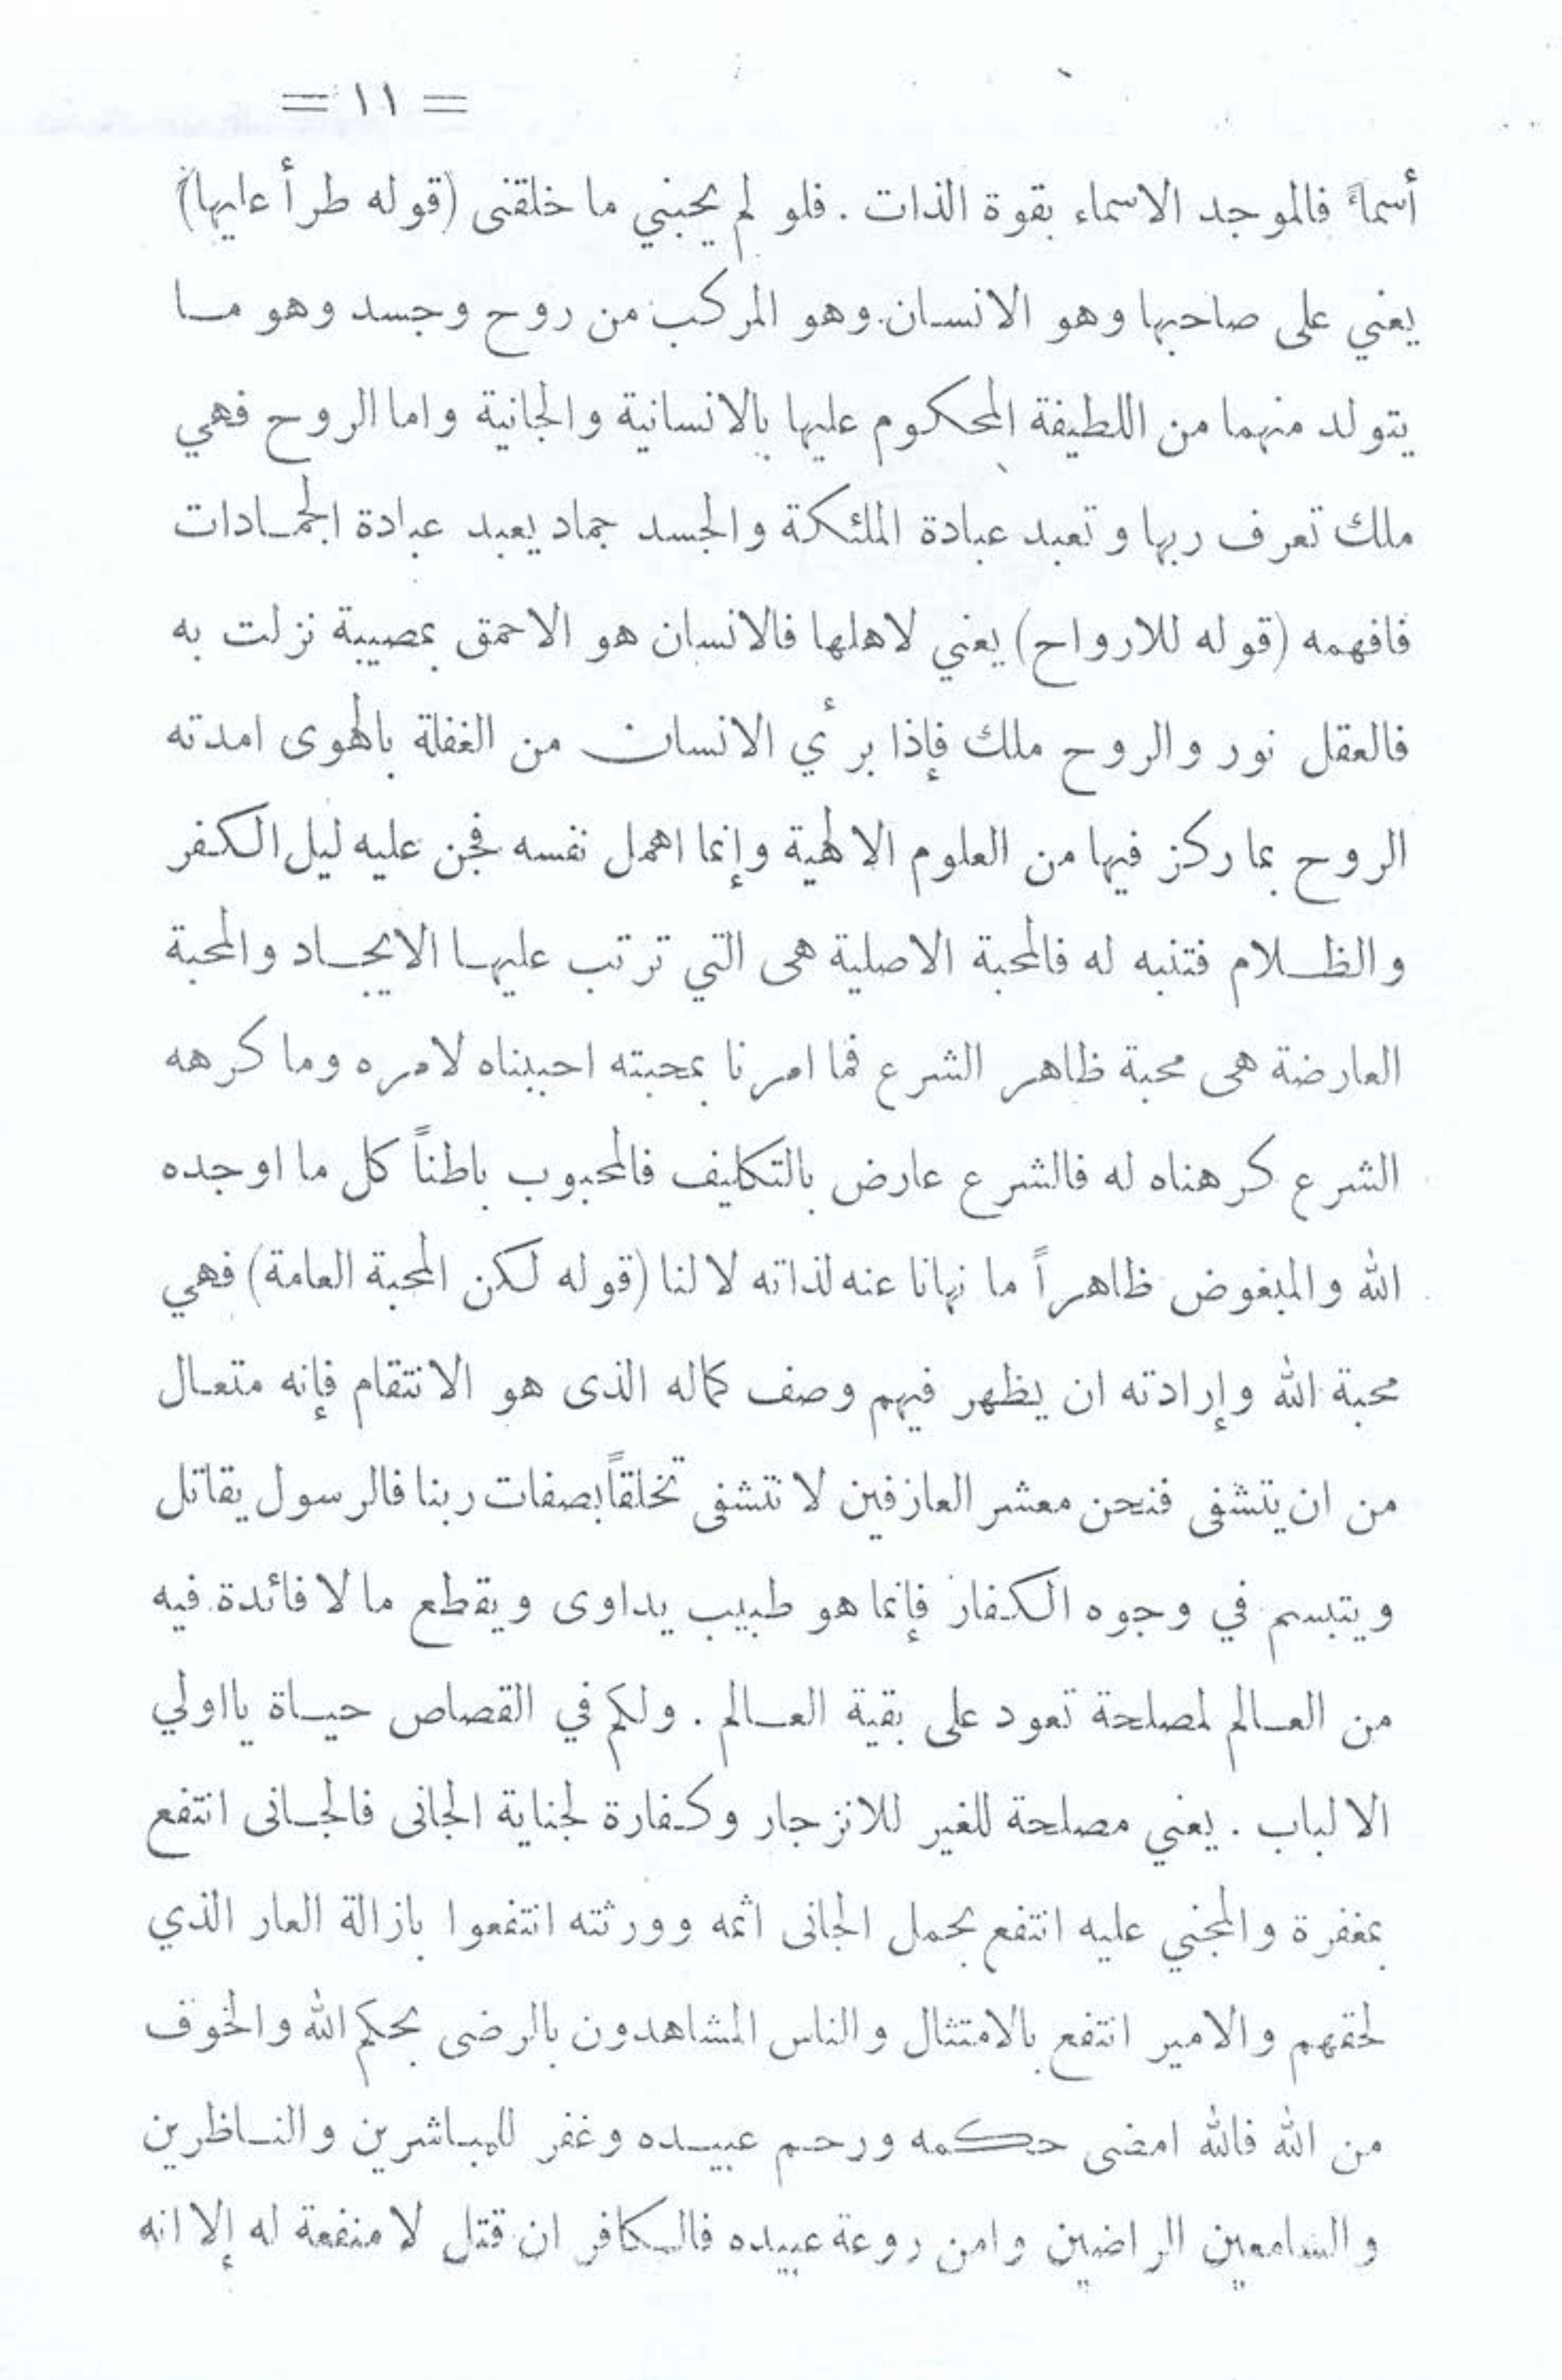 = ١١ =
أسماءً فالموجد الاسماء بقوة الذات . فلو لم يحبني ما خلقنى (قوله طرأ عليها)
يعني على صاحبها وهو الانسان وهو المركب من روح وجسد وهو ما
يتولد منهما من اللطيفة المحكوم عليها بالانسانية والجانية واما الروح فهي
ملك تعرف ربها وتعبد عبادة الملئكة والجسد جماد يعبد عبادة الجمادات
فافهمه (قوله للارواح) يعني لاهلها فالانسان هو الاحمق بمصيبة نزلت به
فالعقل نور والروح ملك فإذا برأي الانسان من الغفلة بالهوى امدته
الروح بما ركز فيها من العلوم الالهية وإنما اهمل نفسه فجن عليه ليل الكفر
والظلام فتنبه له فالمحبة الاصلية هى التي ترتب عليها الايجاد والمحبة
العارضة هى محبة ظاهر الشرع فما امرنا بمحبته احببناه لامره وما كرهه
الشرع كرهناه له فالشرع عارض بالتكليف فالمحبوب باطناً كل ما اوجده
الله والمبغوض ظاهراً ما نهانا عنه لذاته لا لنا (قوله لكن المحبة العامة) فهي
محبة الله وإرادته ان يظهر فيهم وصف كماله الذى هو الانتقام فإنه متعال
من ان يتشفى فنحن معشر العارفين لا نتشفى تخلقاً بصفات ربنا فالرسول يقاتل
ويتبسم في وجوه الكفار فإنما هو طبيب يداوى ويقطع ما لا فائدة فيه
من العالم لمصلحة تعود على بقية العالم . ولكم في القصاص حياة يااولي
الالباب . يعني مصلحة للغير للانزجار وكفارة لجناية الجانى فالجانى انتفع
بمغفرة والمجني عليه انتفع بحمل الجانى اثمه وورثته انتفعوا بازالة العار الذي
لحقهم والامير انتفع بالامتثال والناس المشاهدون بالرضى بحكم الله والخوف
من الله فالله امضى حكمه ورحم عبيده وغفر للمباشرين والناظرين
والسامعين الراضين وامن روعة عبيده فالكافر ان قتل لا منفعة له إلا انه